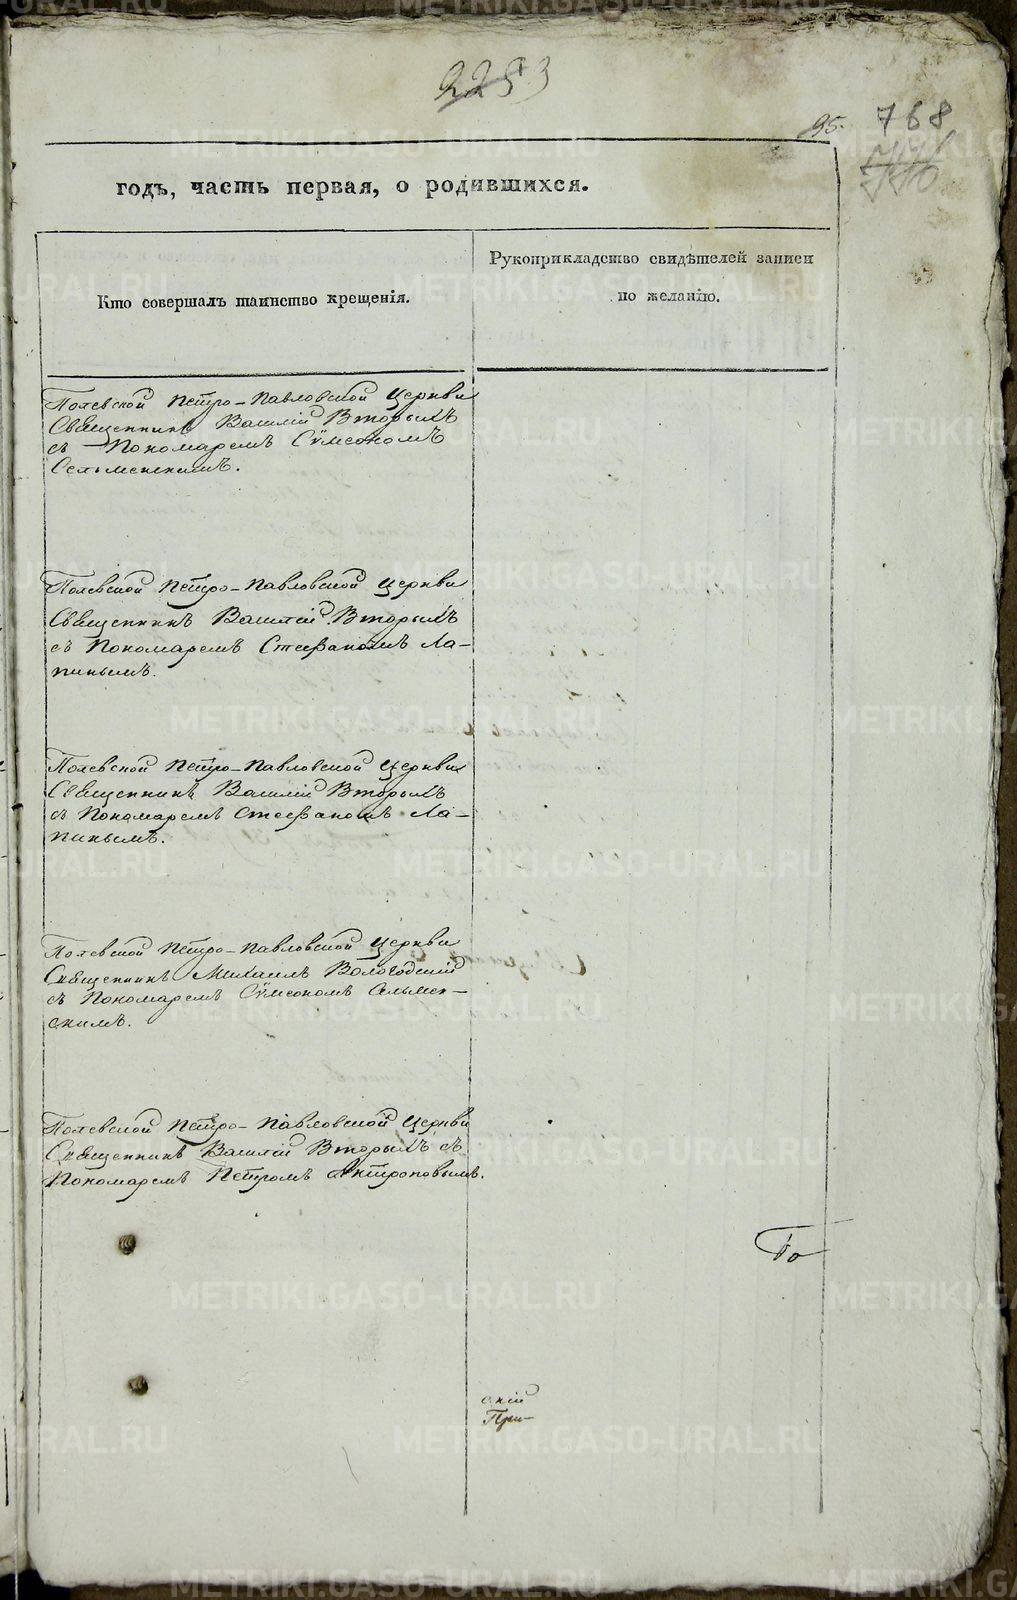 2253
95.
768
годъ, часть первая, о родившихся.
Кто совершалъ таинство крещенія.
Рукоприкладство свидѣтелей записи
по желанію.
Полевской Петро-Павловской Церкви
Священникъ Василій Вторыхъ
съ Пономаремъ Сѵмеономъ
Сельменскимъ.
Полевской Петро-Павловской Церкви
Священникъ Василій Вторыхъ
съ Пономаремъ Стефаномъ Ла-
пинымъ.
Полевской Петро-Павловской Церкви
Священникъ Василій Вторыхъ
съ Пономаремъ Стефаномъ Ла-
пинымъ.
Полевской Петро-Павловской Церкви
Священникъ Михаилъ Вологодскій
съ Пономаремъ Сѵмеономъ Сельмен-
скимъ.
Полевской Петро-Павловской Церкви
Священникъ Василій Вторыхъ съ
Пономаремъ Петромъ Антроповымъ.
скій
При-
METRIKI.GASO-URAL.RU